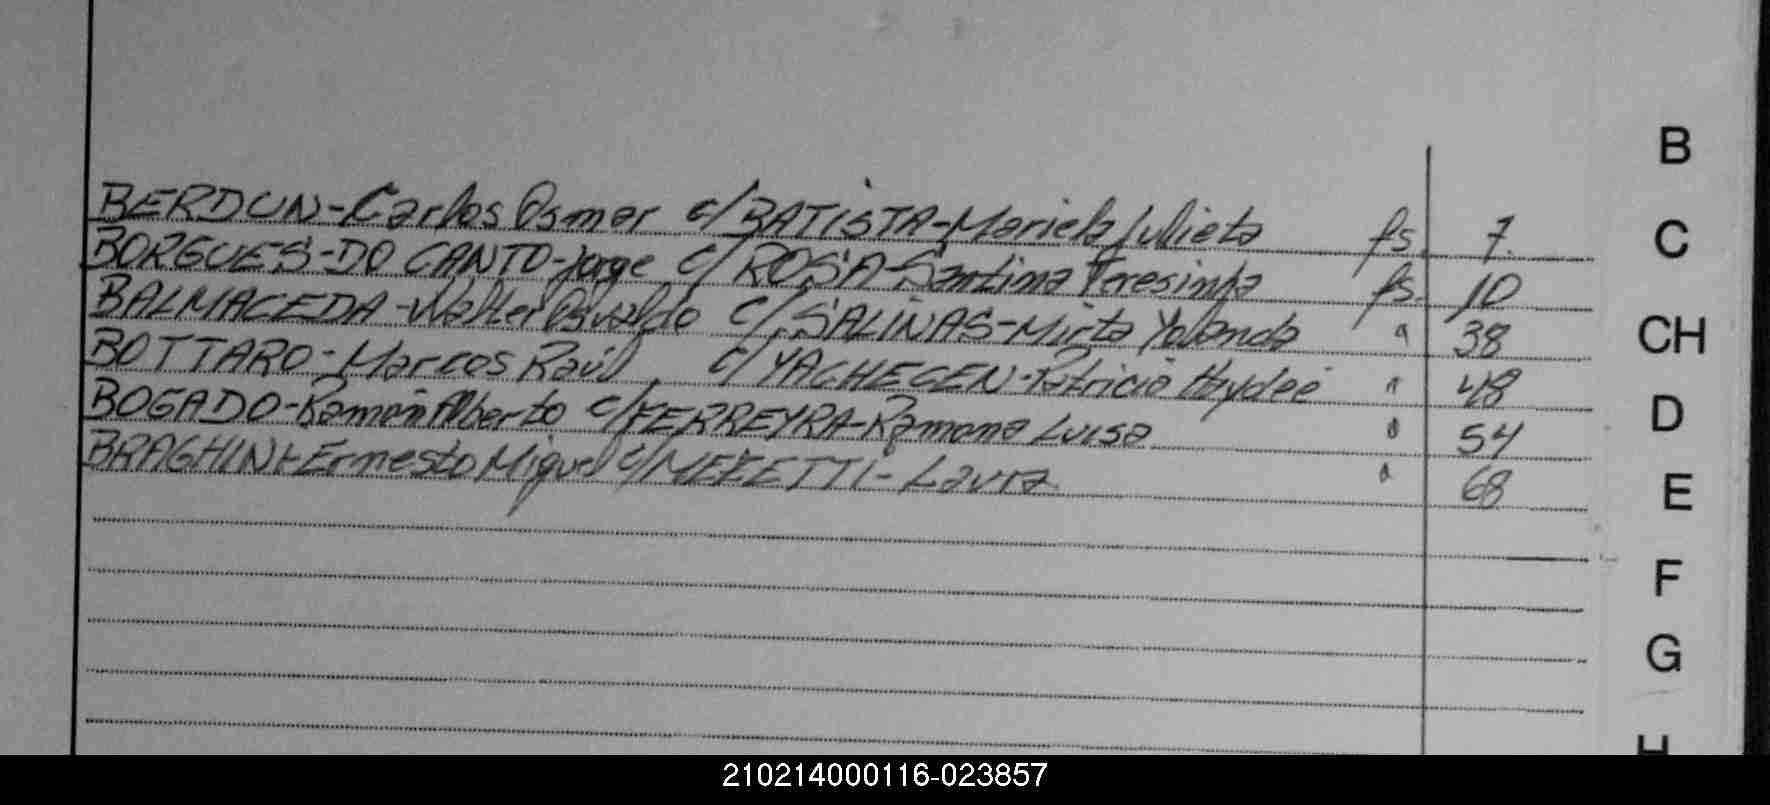 BERDUN-Carlos Osmar c/BATISTA-Mariela Julieta fs. 7.
BORGUES-DO CANTO-Jorge c/ROSA-Santima Teresinha fs. 10
BALMACEDA-Walter Osvaldo c/SALINAS-Mirta Yolanda " 38
BOTTARO-Marcos Raúl, c/YACHECEN-Patricia Haydeé " 48
BOGADO-Ramón Alberto c/FERREYRA-Ramona Luisa " 54
BRAGHINI-Ernesto Miguel c/MEEETTI-Laura " 68
B
C
CH
D
E
F
G
H
210214000116-023857